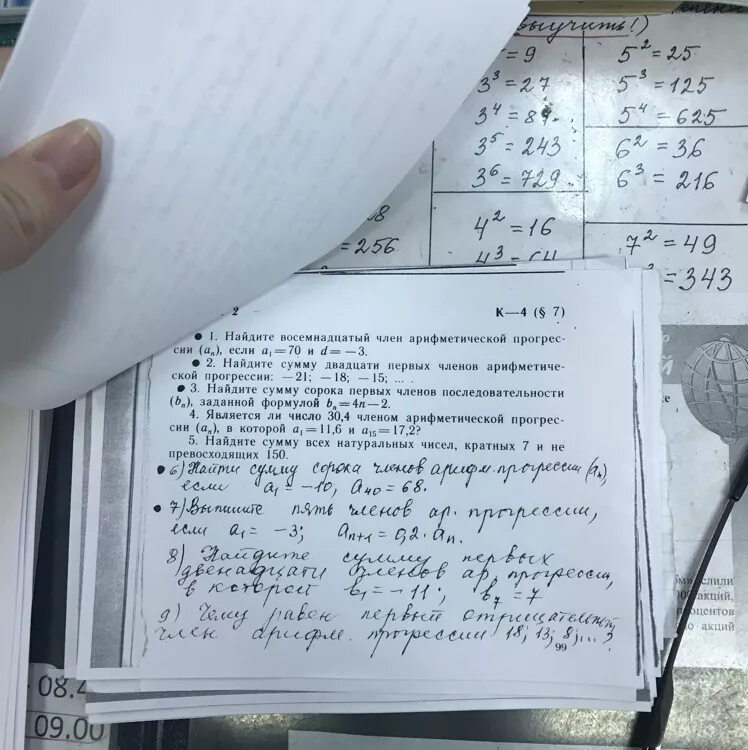 выучить!)
= 9
3³ = 27
3⁴ = 81
3⁵ = 243
3⁶ = 729
5² = 25
5³ = 125
5⁴ = 625
6² = 36
6³ = 216
4² = 16
4³ = 64
7² = 49
= 343
= 256
2 К—4 (§ 7)
● 1. Найдите восемнадцатый член арифметической прогрес-
сии (aₙ), если a₁=70 и d=−3.
● 2. Найдите сумму двадцати первых членов арифметиче-
ской прогрессии: −21; −18; −15; ... .
● 3. Найдите сумму сорока первых членов последовательности
(bₙ), заданной формулой bₙ=4n−2.
4. Является ли число 30,4 членом арифметической прогрес-
сии (aₙ), в которой a₁=11,6 и a₁₅=17,2?
5. Найдите сумму всех натуральных чисел, кратных 7 и не
превосходящих 150.
● 6) Найти сумму сорока членов арифм. прогрессии (aₙ),
если a₁ = −10, a₄₀ = 68.
● 7) Выпишите пять членов ар. прогрессии,
если a₁ = −3; aₙ₊₁ = 0,2·aₙ.
8) Найдите сумму первых
двенадцати членов ар. прогрессии,
в которой b₁ = −11; b₇ = 7
9) Чему равен первый отрицательный
член арифм. прогрессии 18; 13; 8; ... ?
99
08.4
09.00
слили
акций,
процентов
акций